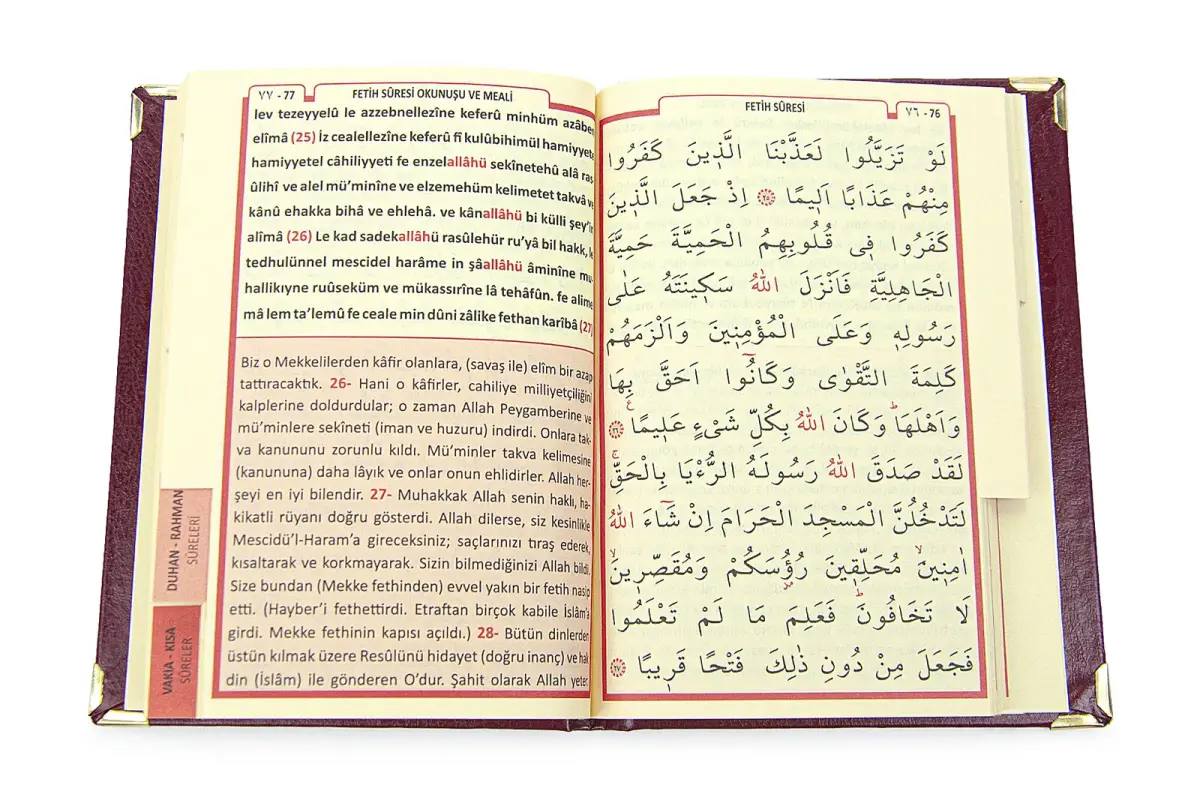 ٧٧ - 77
FETİH SÛRESİ OKUNUŞU VE MEALİ
lev tezeyyelû le azzebnellezîne keferû minhüm azâben
elîmâ (25) İz cealellezîne keferû fî kulûbihimül hamiyyete
hamiyyetel câhiliyyeti fe enzelallâhü sekînetehû alâ ras
ûlihî ve alel mü’minîne ve elzemehüm kelimetet takvâ ve
kânû ehakka bihâ ve ehlehâ. ve kânallâhü bi külli şey’in
alîmâ (26) Le kad sadekallâhü rasûlehür ru’yâ bil hakk, le
tedhulünnel mescidel harâme in şâallâhü âminîne mu-
hallikıyne ruûseküm ve mükassırîne lâ tehâfûn. fe alime
mâ lem ta’lemû fe ceale min dûni zâlike fethan karîbâ (27)
Biz o Mekkelilerden kâfir olanlara, (savaş ile) elîm bir azap
tattıracaktık. 26- Hani o kâfirler, cahiliye milliyetçiliğini
kalplerine doldurdular; o zaman Allah Peygamberine ve
mü’minlere sekîneti (iman ve huzuru) indirdi. Onlara tak-
va kanununu zorunlu kıldı. Mü’minler takva kelimesine
(kanununa) daha lâyık ve onlar onun ehlidirler. Allah her-
şeyi en iyi bilendir. 27- Muhakkak Allah senin haklı, ha-
kikatli rüyanı doğru gösterdi. Allah dilerse, siz kesinlikle
Mescidü’l-Haram’a gireceksiniz; saçlarınızı tıraş ederek,
kısaltarak ve korkmayarak. Sizin bilmediğinizi Allah bildi.
Size bundan (Mekke fethinden) evvel yakın bir fetih nasip
etti. (Hayber’i fethettirdi. Etraftan birçok kabile İslâm’a
girdi. Mekke fethinin kapısı açıldı.) 28- Bütün dinlerden
üstün kılmak üzere Resûlünü hidayet (doğru inanç) ve hak
din (İslâm) ile gönderen O’dur. Şahit olarak Allah yeter.
DUHAN - RAHMAN
SÛRELERİ
VAKIA - KISA
SÛRELER
FETİH SÛRESİ
٧٦ - 76
لَوْ تَزَيَّلُوا لَعَذَّبْنَا الَّذ۪ينَ كَفَرُوا
مِنْهُمْ عَذَابًا اَل۪يمًا ﴿٢٥﴾ اِذْ جَعَلَ الَّذ۪ينَ
كَفَرُوا ف۪ي قُلُوبِهِمُ الْحَمِيَّةَ حَمِيَّةَ
الْجَاهِلِيَّةِ فَاَنْزَلَ اللّٰهُ سَك۪ينَتَهُ عَلٰى
رَسُولِه۪ وَعَلَى الْمُؤْمِن۪ينَ وَاَلْزَمَهُمْ
كَلِمَةَ التَّقْوٰى وَكَانُٓوا اَحَقَّ بِهَا
وَاَهْلَهَاۜ وَكَانَ اللّٰهُ بِكُلِّ شَيْءٍ عَل۪يمًا ﴿٢٦﴾
لَقَدْ صَدَقَ اللّٰهُ رَسُولَهُ الرُّءْيَا بِالْحَقِّۚ
لَتَدْخُلُنَّ الْمَسْجِدَ الْحَرَامَ اِنْ شَٓاءَ اللّٰهُ
اٰمِن۪ينَۙ مُحَلِّق۪ينَ رُؤُسَكُمْ وَمُقَصِّر۪ينَۙ
لَا تَخَافُونَۜ فَعَلِمَ مَا لَمْ تَعْلَمُوا
فَجَعَلَ مِنْ دُونِ ذٰلِكَ فَتْحًا قَر۪يبًا ﴿٢٧﴾